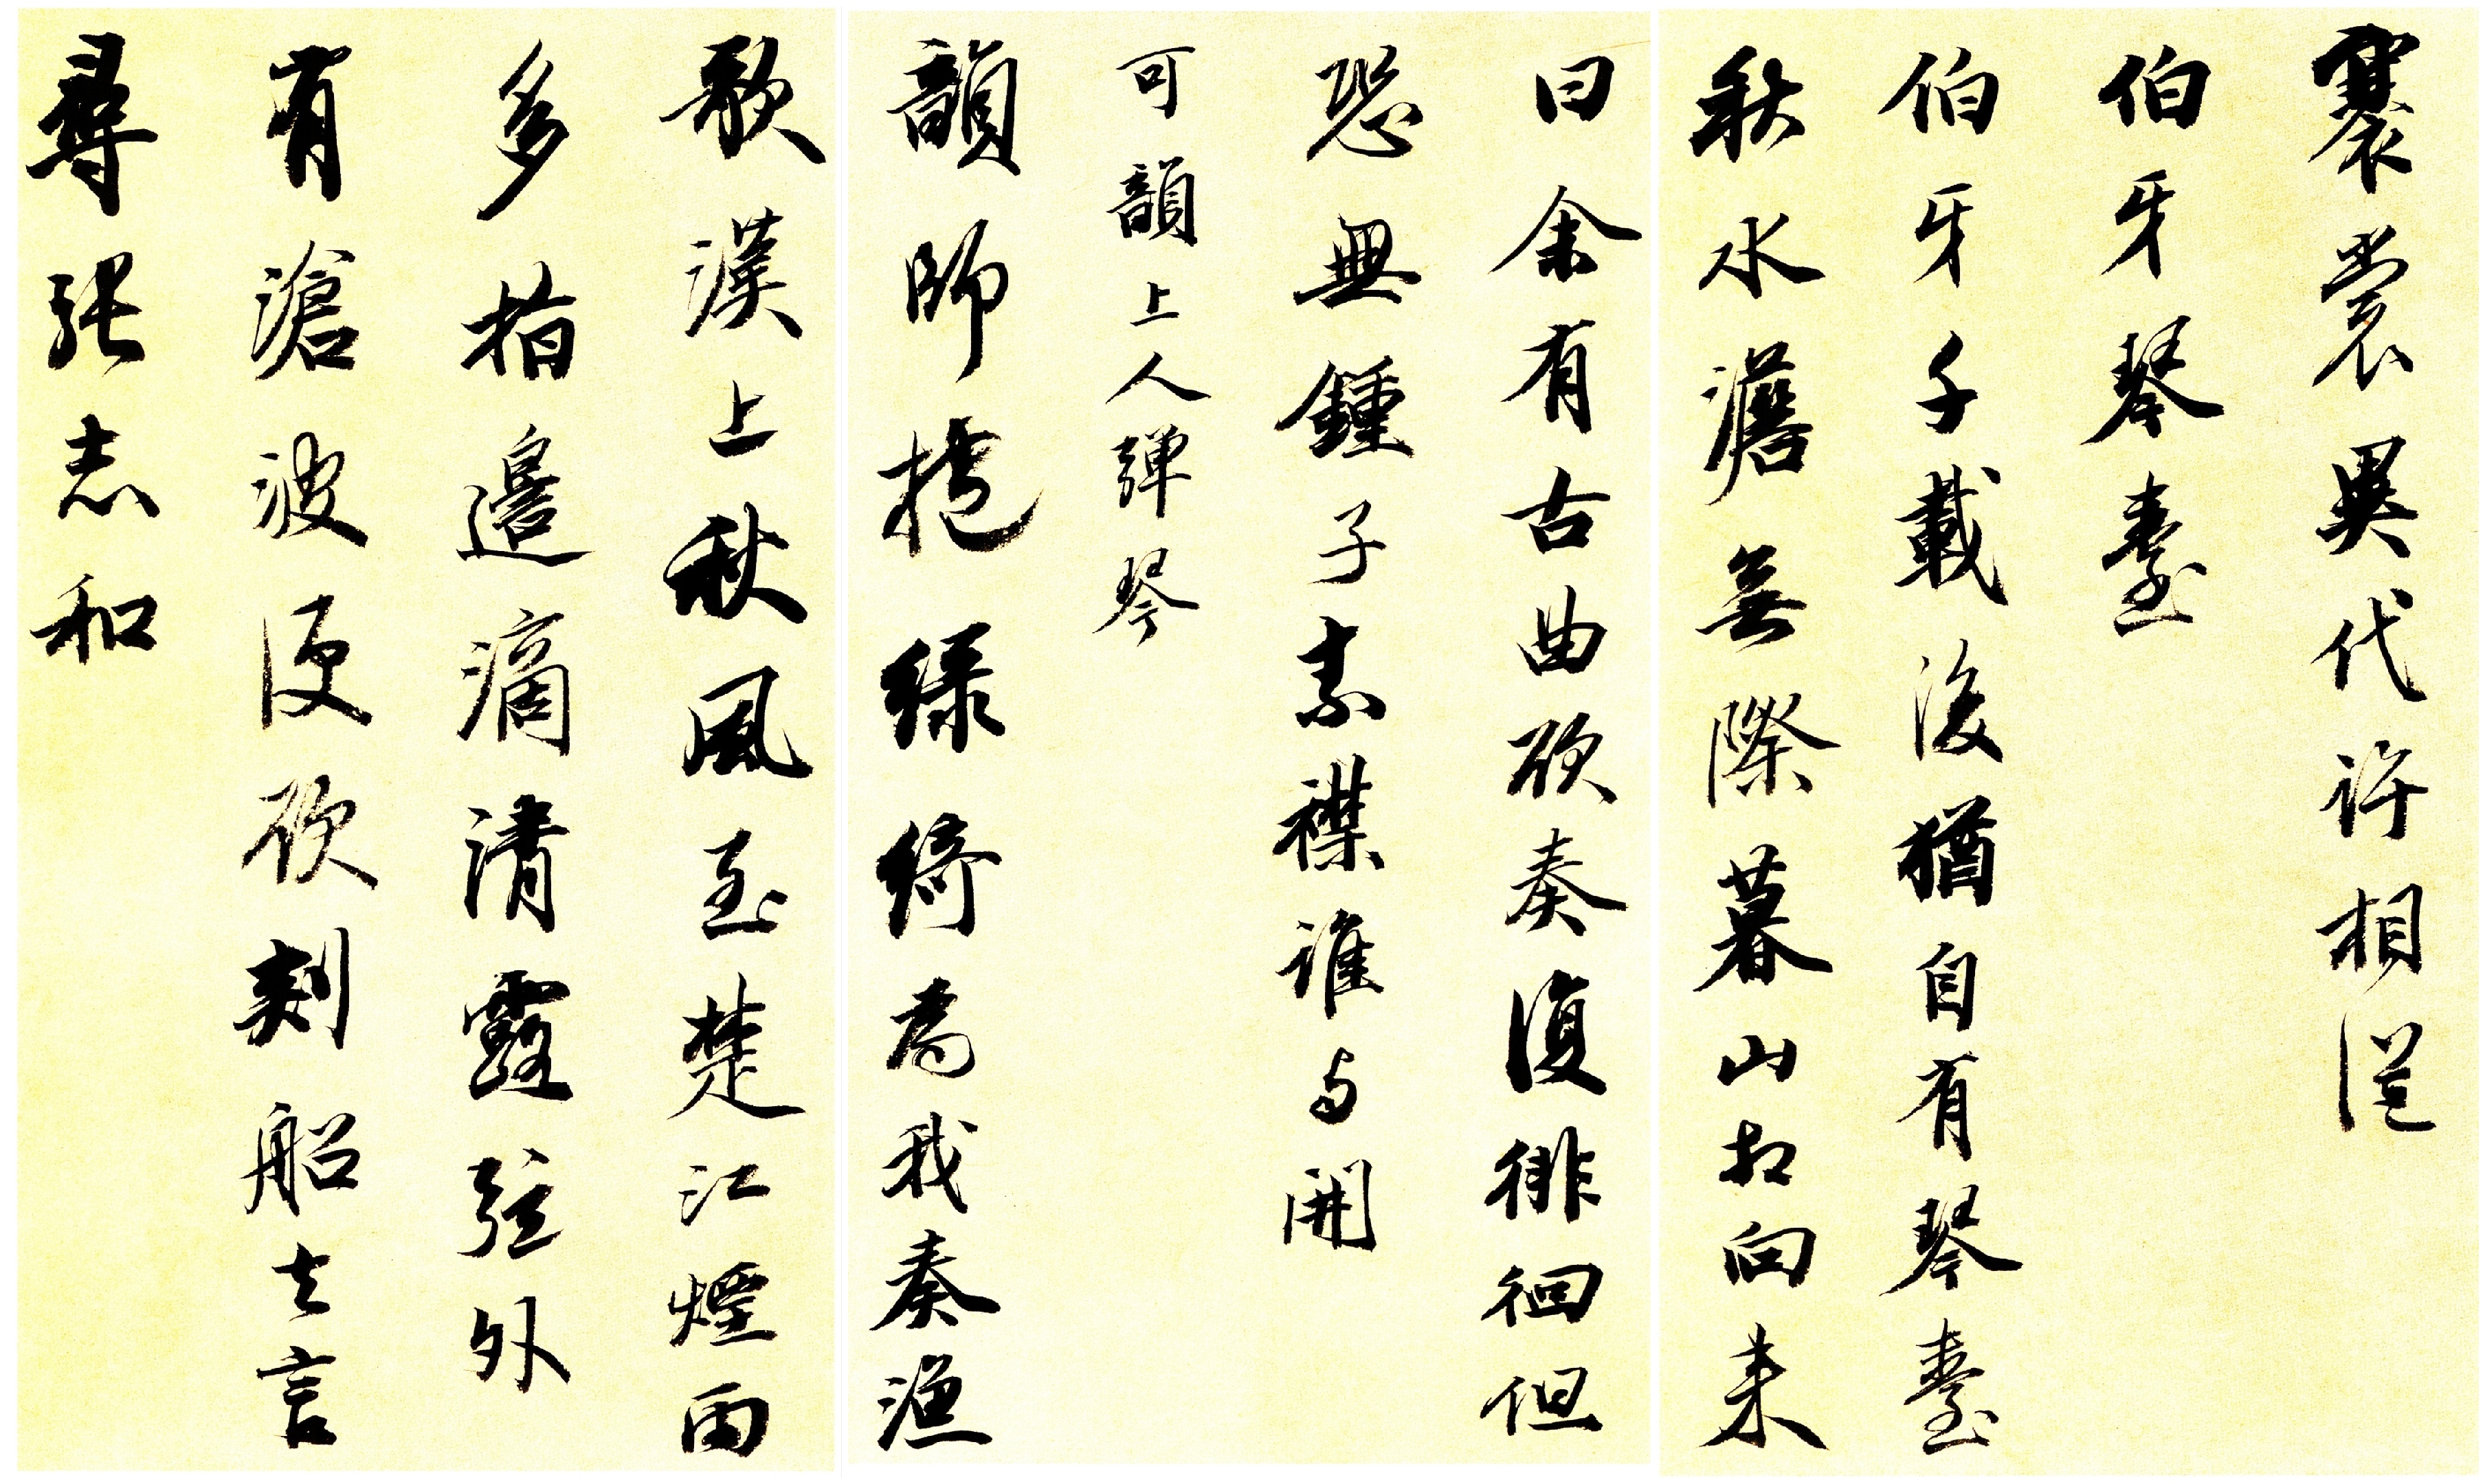 褰裳異代許相從
伯牙琴臺
伯牙千載後猶自有琴臺
秋水澹無際暮山相向來
曰余有古曲欲奏復徘徊但
恐無鍾子素襟誰与開
可韻上人彈琴
韻師抱綠綺為我奏漁
歌漢上秋風至楚江煙雨
多指邊滴清露弦外
有滄波便欲刺船去言
尋張志和